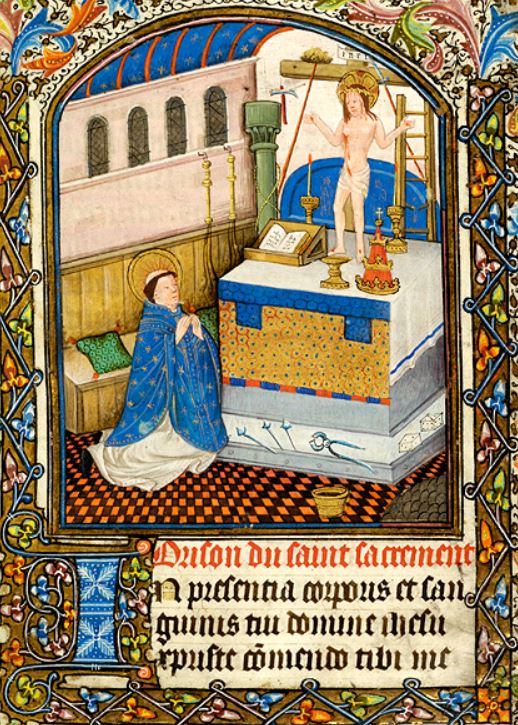 INRI
Orison du saint sacrement
IN presentia corporis et san
guinis tui domine ihesu
xpriste cōmendo tibi me